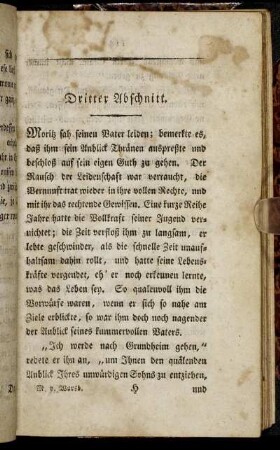 Dritter Abschnitt.
Moritz sah seinen Vater leiden; bemerkte es,
daß ihm sein Anblick Thränen auspreßte und
beschloß auf sein eigen Guth zu gehen. Der
Rausch der Leidenschaft war verraucht, die
Vernunft trat wieder in ihre vollen Rechte, und
mit ihr das rechtende Gewissen. Eine kurze Reihe
Jahre hatte die Vollkraft seiner Jugend ver-
nichtet; die Zeit verfloß ihm zu langsam, er
lebte geschwinder, als die schnelle Zeit unauf-
haltsam dahin rollt, und hatte seine Lebens-
kräfte vergeudet, eh' er noch erkennen lernte,
was das Leben sey. So qualenvoll ihm die
Vorwürfe waren, wenn er sich so nahe am
Ziele erblickte, so war ihm doch noch nagender
der Anblick seines kummervollen Vaters.
„Ich werde nach Grundheim gehen,“
redete er ihn an, „um Ihnen den quälenden
Anblick Ihres unwürdigen Sohns zu entziehen,
H und